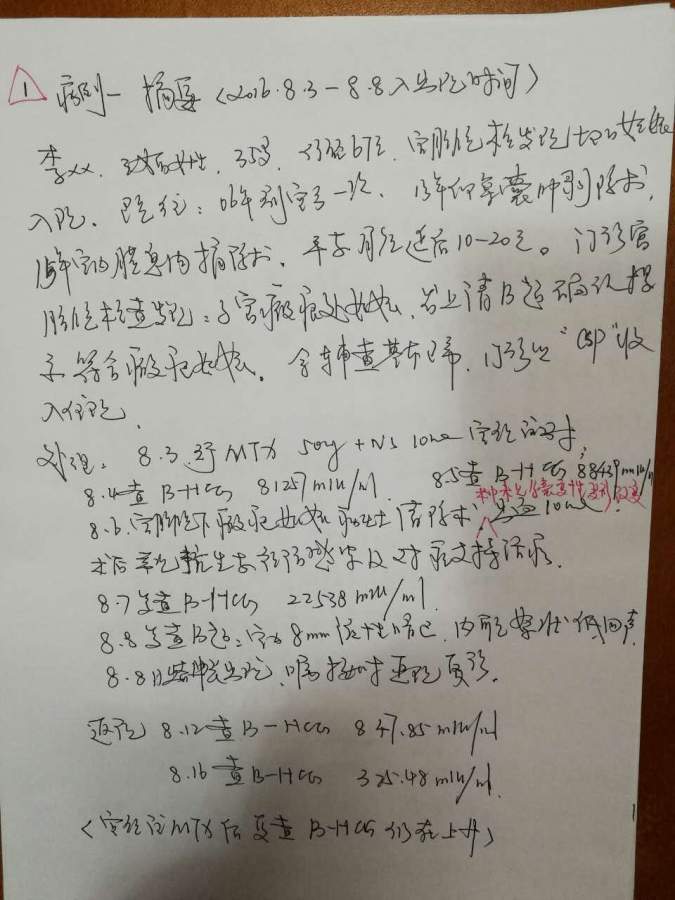 1 病例一 摘要（2016.8.3－8.8入出院时间）
李xx，女性，35岁，停经67天，宫腔镜检发现妊娠
入院。既往：06年剖宫产一次、卵巢囊肿剔除术，
宫内膜息肉摘除术，平素月经延后10-20天。门诊宫
腔镜检查发现：子宫瘢痕处妊娠，B超
示符合瘢痕妊娠。门诊以“CSP”收
入住院。
处理：8.3予MTX 50mg + NS 10ml 宫颈注射；
8.4查B-HCG 81257mIU/ml 8.5查B-HCG 88439mIU/ml
8.6.宫腔镜下瘢痕妊娠病灶清除术，10ml
术后予抗生素预防感染及对症支持治疗。
8.7复查B-HCG 22538mIU/ml.
8.8复查B超：宫内8mm液性暗区，内见絮状低回声
8.8日出院，嘱按时返院复诊。
返院 8.12查B-HCG 847.85mIU/ml
8.16查B-HCG 325.48mIU/ml.
（宫颈注MTX后复查B-HCG仍在上升）